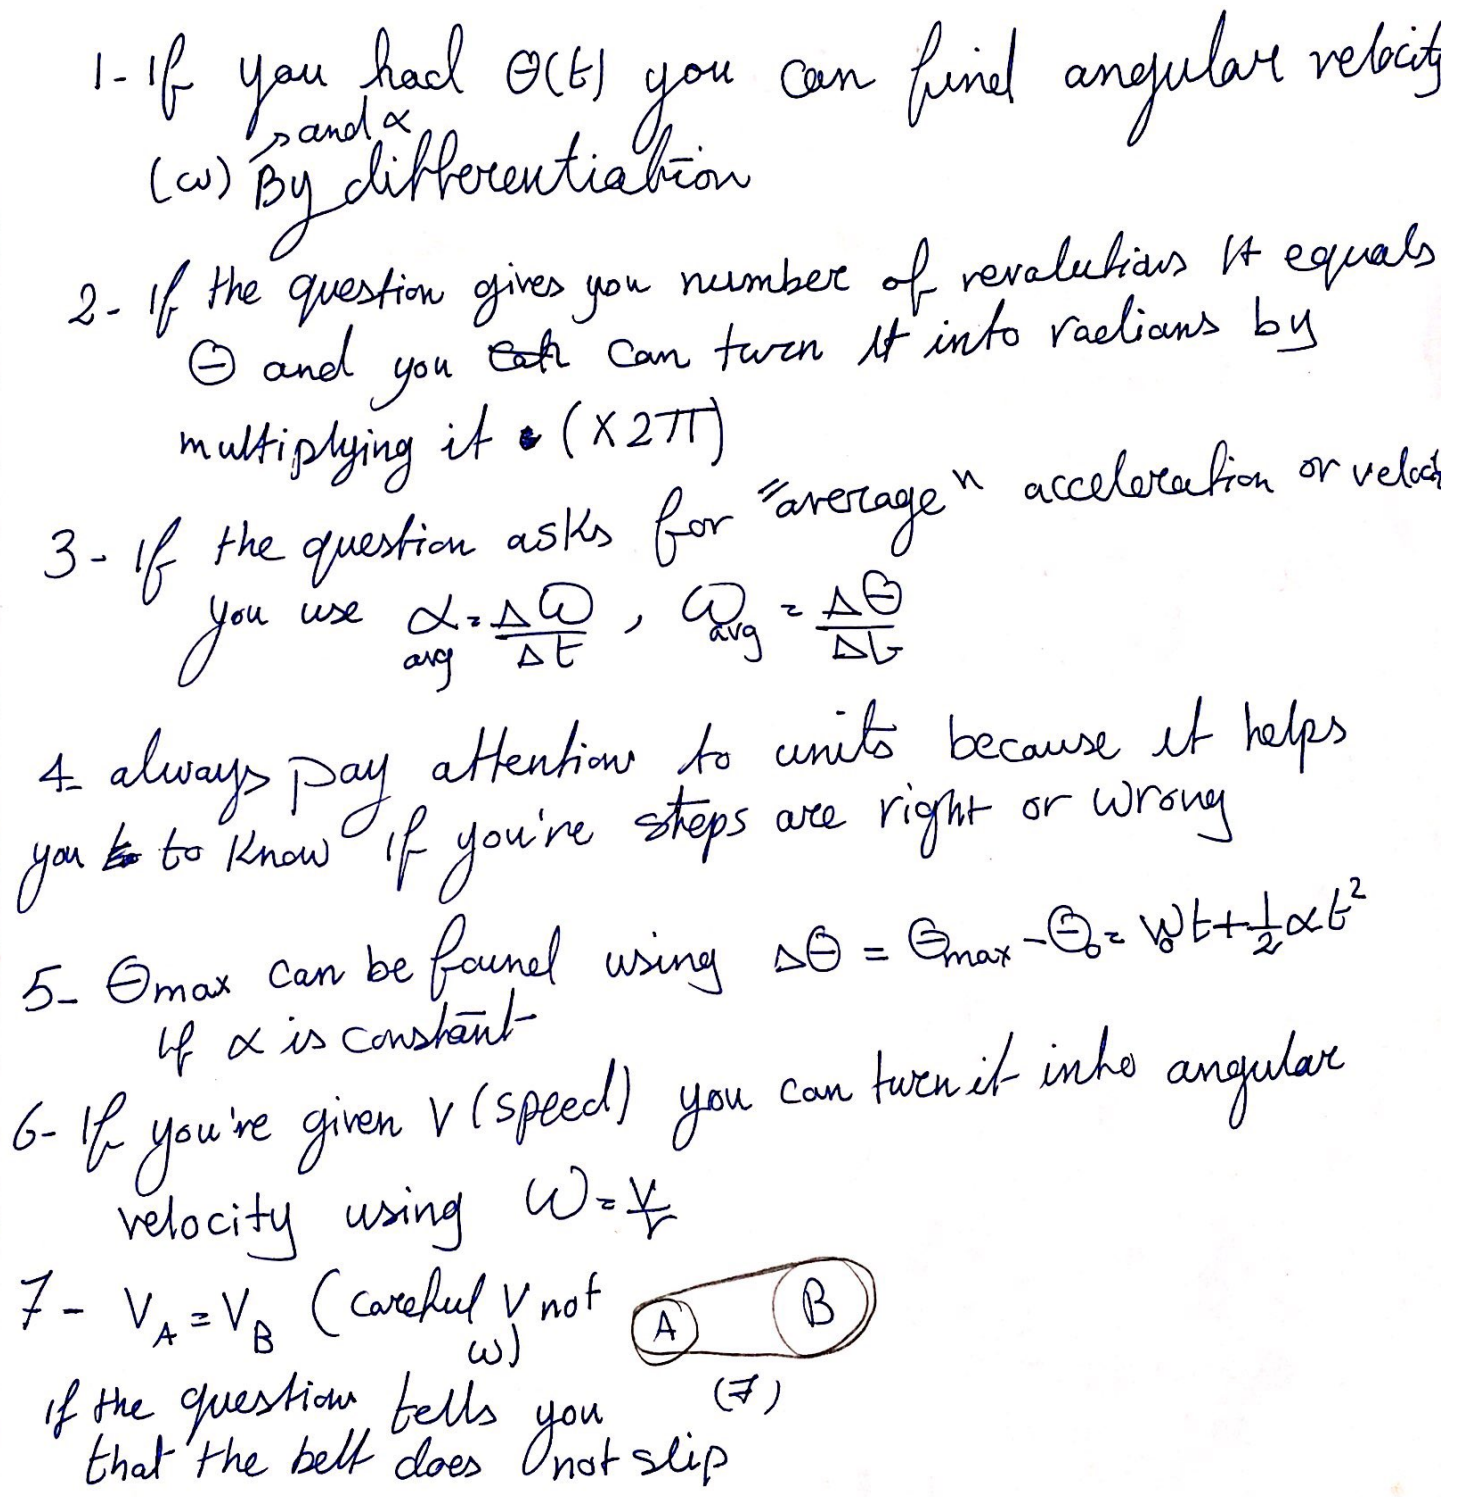 1- If you had θ(t) you can find angular velocity
and α
(ω) By differentiation
2- If the question gives you number of revalutians It equals
θ and you can turn it into radians by
multiplying it (×2π)
3- If the question asks for "average" acceleration or veloci
you use α avg = Δω/Δt , ω avg = Δθ/Δt
4- always pay attention to units because it helps
you to Know if you're steps are right or wrong
5- θmax can be found using Δθ = θmax - θ₀ = W₀t + 1/2 αt²
If α is constant
6- If you're given v (speed) you can turn it into angular
velocity using ω = V/r
7- V_A = V_B (careful V not
ω)
A B
(7)
if the question tells you
that the belt does not slip